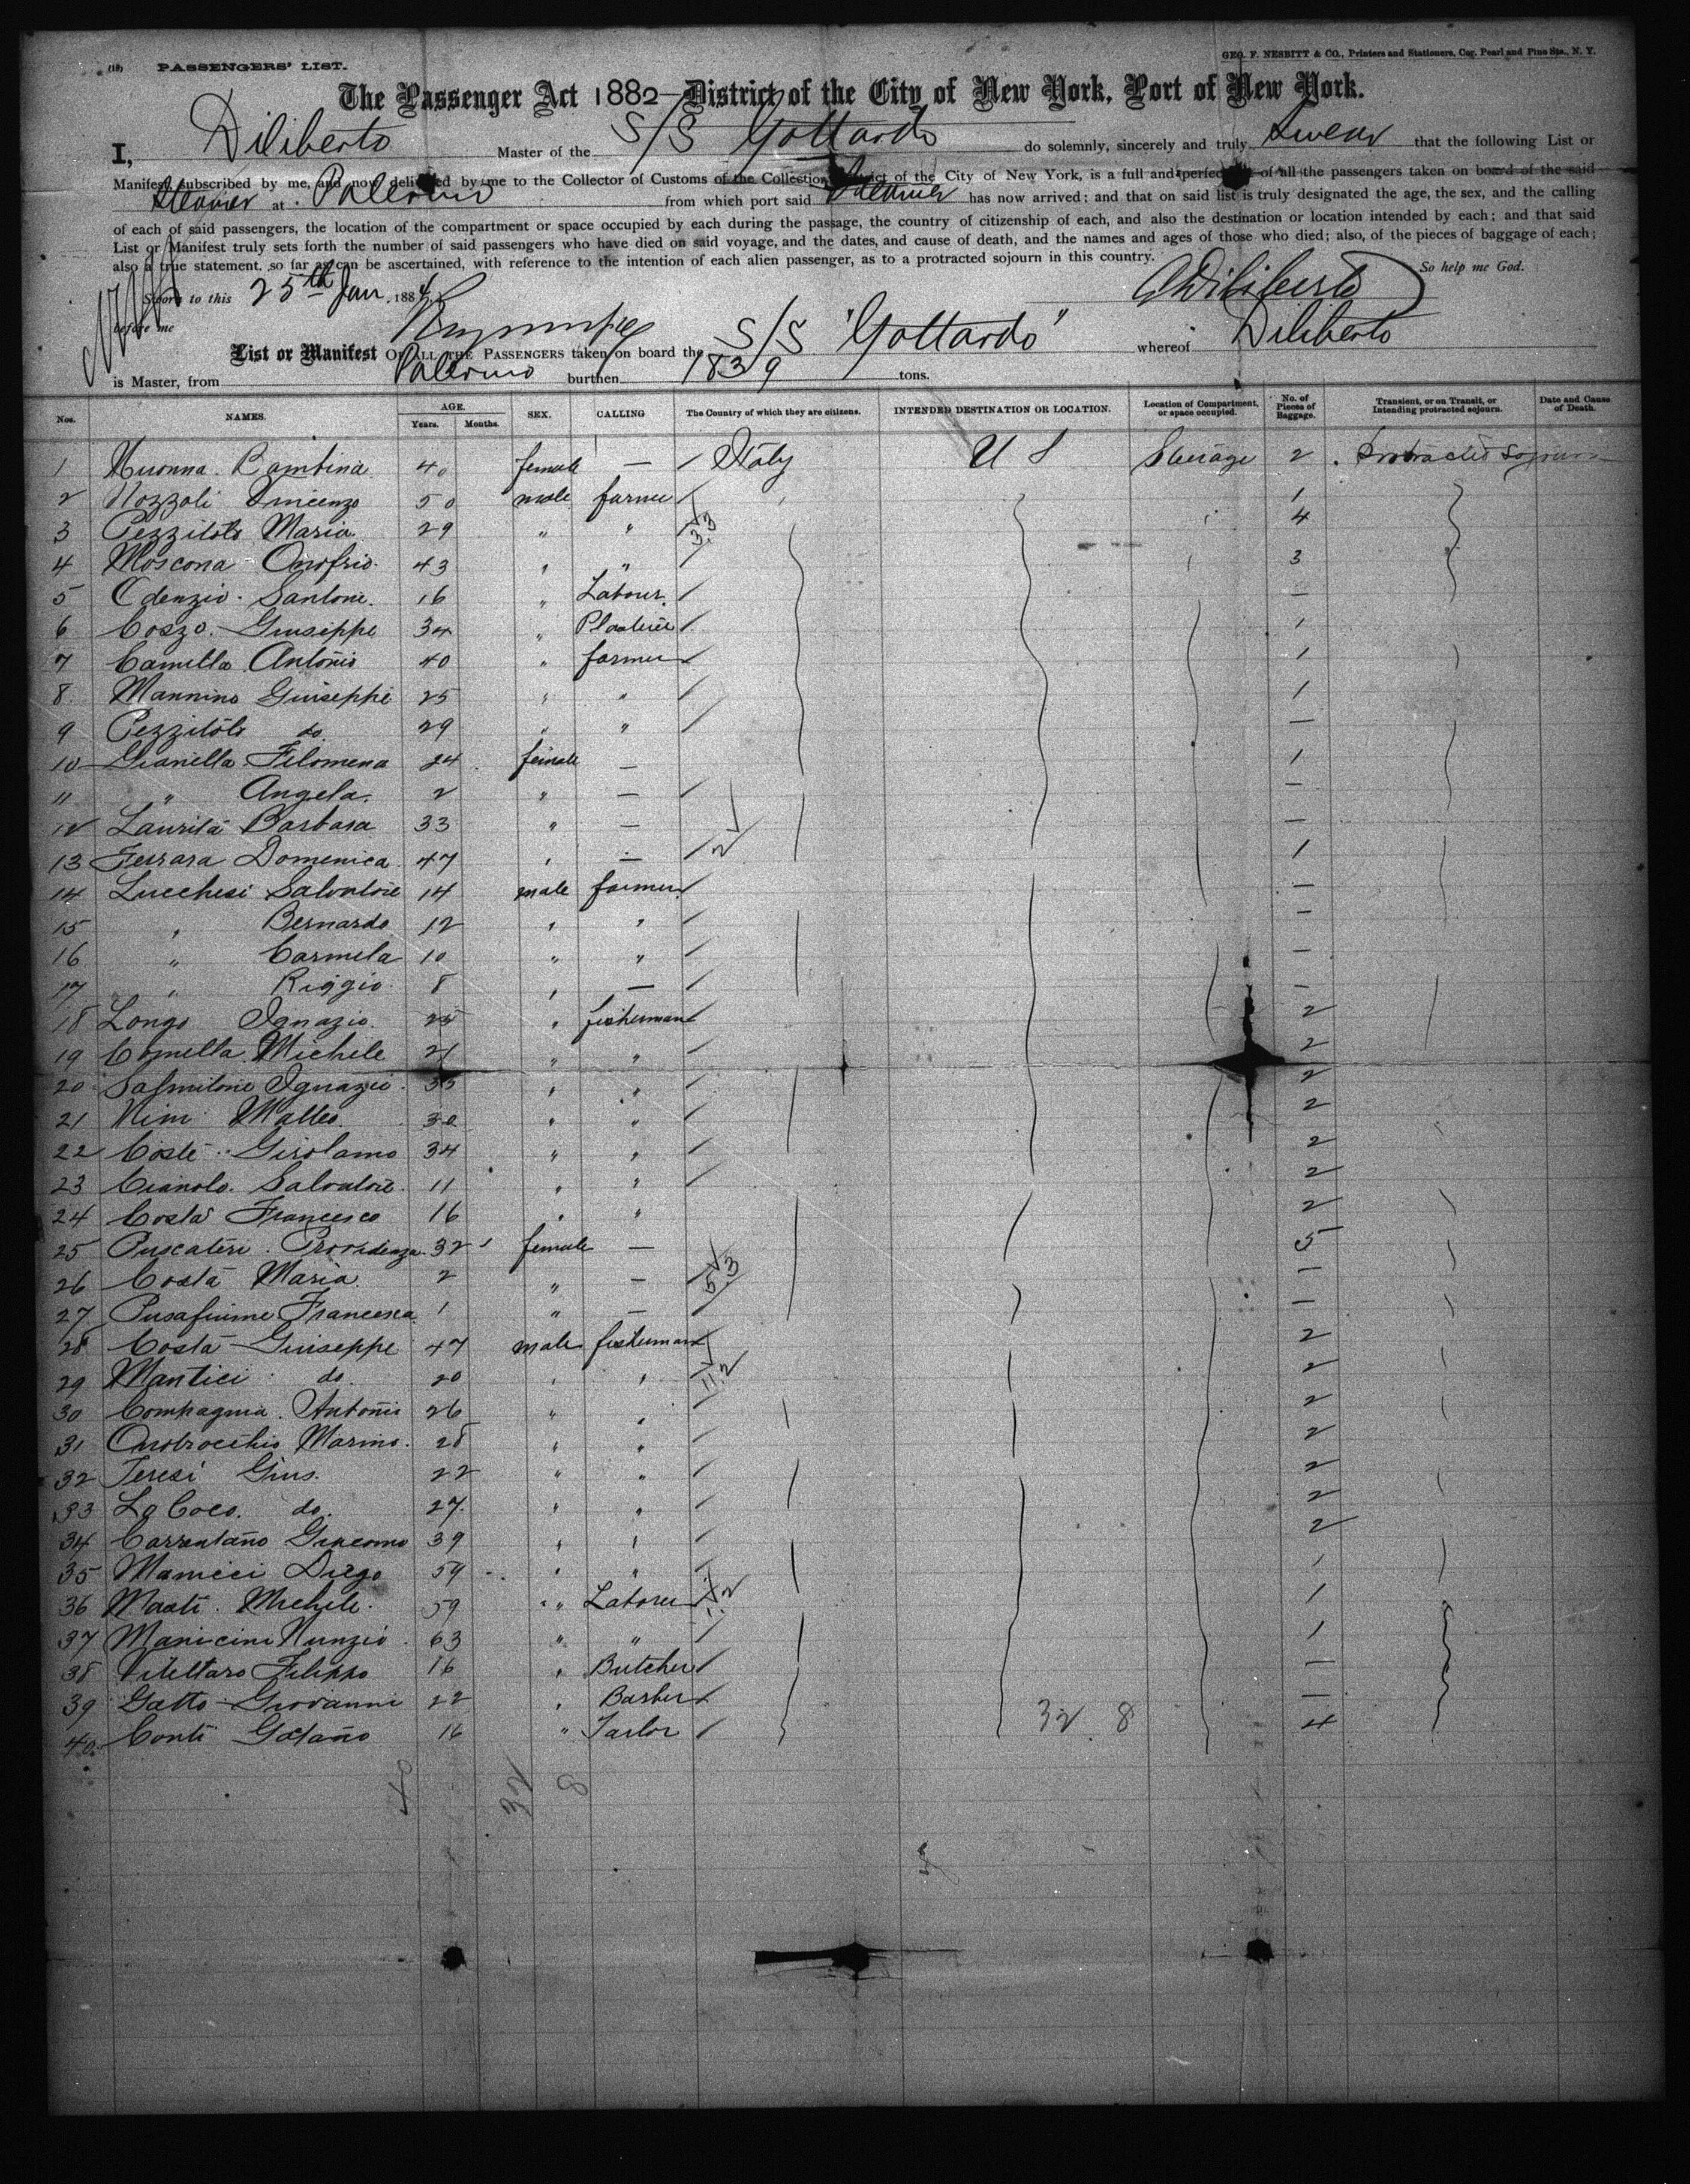 (18) PASSENGERS' LIST. GEO. F. NESBITT & CO., Printers and Stationers, Cor. Pearl and Pine Sts., N. Y.
The Passenger Act 1882—District of the City of New York, Port of New York.
I, Diliberto Master of the S/S Gottardo do solemnly, sincerely and truly Swear that the following List or
Manifest, subscribed by me, and now delivered by me to the Collector of Customs of the Collection District of the City of New York, is a full and perfect of all the passengers taken on board of the said
Steamer at Palermo from which port said Steamer has now arrived; and that on said list is truly designated the age, the sex, and the calling
of each of said passengers, the location of the compartment or space occupied by each during the passage, the country of citizenship of each, and also the destination or location intended by each; and that said
List or Manifest truly sets forth the number of said passengers who have died on said voyage, and the dates, and cause of death, and the names and ages of those who died; also, of the pieces of baggage of each;
also a true statement, so far as can be ascertained, with reference to the intention of each alien passenger, as to a protracted sojourn in this country. So help me God.
Sworn to this 25th Jan. 1884 Diliberto
before me
List or Manifest OF ALL THE PASSENGERS taken on board the S/S "Gottardo" whereof Diliberto
is Master, from Palermo burthen 1839 tons.
Nos. NAMES. AGE. Years. Months. SEX. CALLING The Country of which they are citizens. INTENDED DESTINATION OR LOCATION. Location of Compartment, or space occupied. No. of Pieces of Baggage. Transient, or on Transit, or Intending protracted sojourn. Date and Cause of Death.
1 Bambina 40 female — Italy U S Steerage 2 Protracted Sojourn
2 Nozzoli Vincenzo 50 male farmer 1
3 Pezzitols Maria 29 " " 4
4 Moscona Onofrio 43 " " 3
5 Santoni 16 " Labour —
6 Cozzo Giuseppe 34 " Plasterer 1
7 Camilla Antonio 40 " farmer 1
8 Mannino Giuseppe 25 " " 1
9 Pezzitols do 29 " " —
10 Gianella Filomena 24 female — 1
11 " Angela 2 " — —
12 Laurita Barbara 33 " — —
13 Ferrara Domenica 47 " — 1
14 Lucchesi Salvatore 14 male farmer —
15 " Bernardo 12 " " —
16 " Carmela 10 " " —
17 " Riggio 8 " — —
18 Longo Ignazio 25 " fisherman 2
19 Comella Michele 21 " " 2
20 Ignazio 35 " " 2
21 Nini Matteo 30 " " 2
22 Coste Girolamo 34 " " 2
23 Cianolo Salvatore 11 " " 2
24 Costa Francesco 16 " " 2
25 Puscateri Providenza 32 female — 5
26 Costa Maria 2 " — —
27 Pusafiume Francesca 1 " — —
28 Costa Giuseppe 47 male fisherman 2
29 Mantici do. 20 " " 2
30 Compagnia Antonio 26 " " 2
31 Marino 28 " " 2
32 Teresi Gius. 22 " " 2
33 Lo Coco do. 27 " " 2
34 Giacomo 39 " " 2
35 Diego 59 " " 1
36 Masti Michele 59 " Laborer 1
37 Manicini Nunzio 63 " " 1
38 Filippo 16 " Butcher —
39 Gatto Giovanni 22 " Barber —
40 Conti Gaetano 16 " Tailor 32 8 4
40 32 8